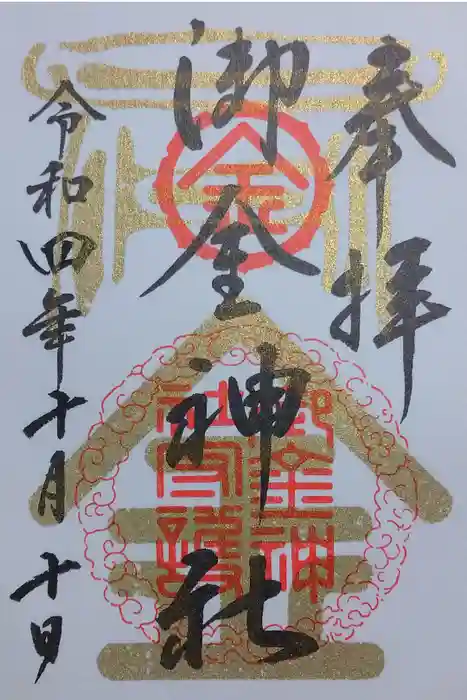 奉拝
御金神社
令和四年十月十日
金
御金神
社守護